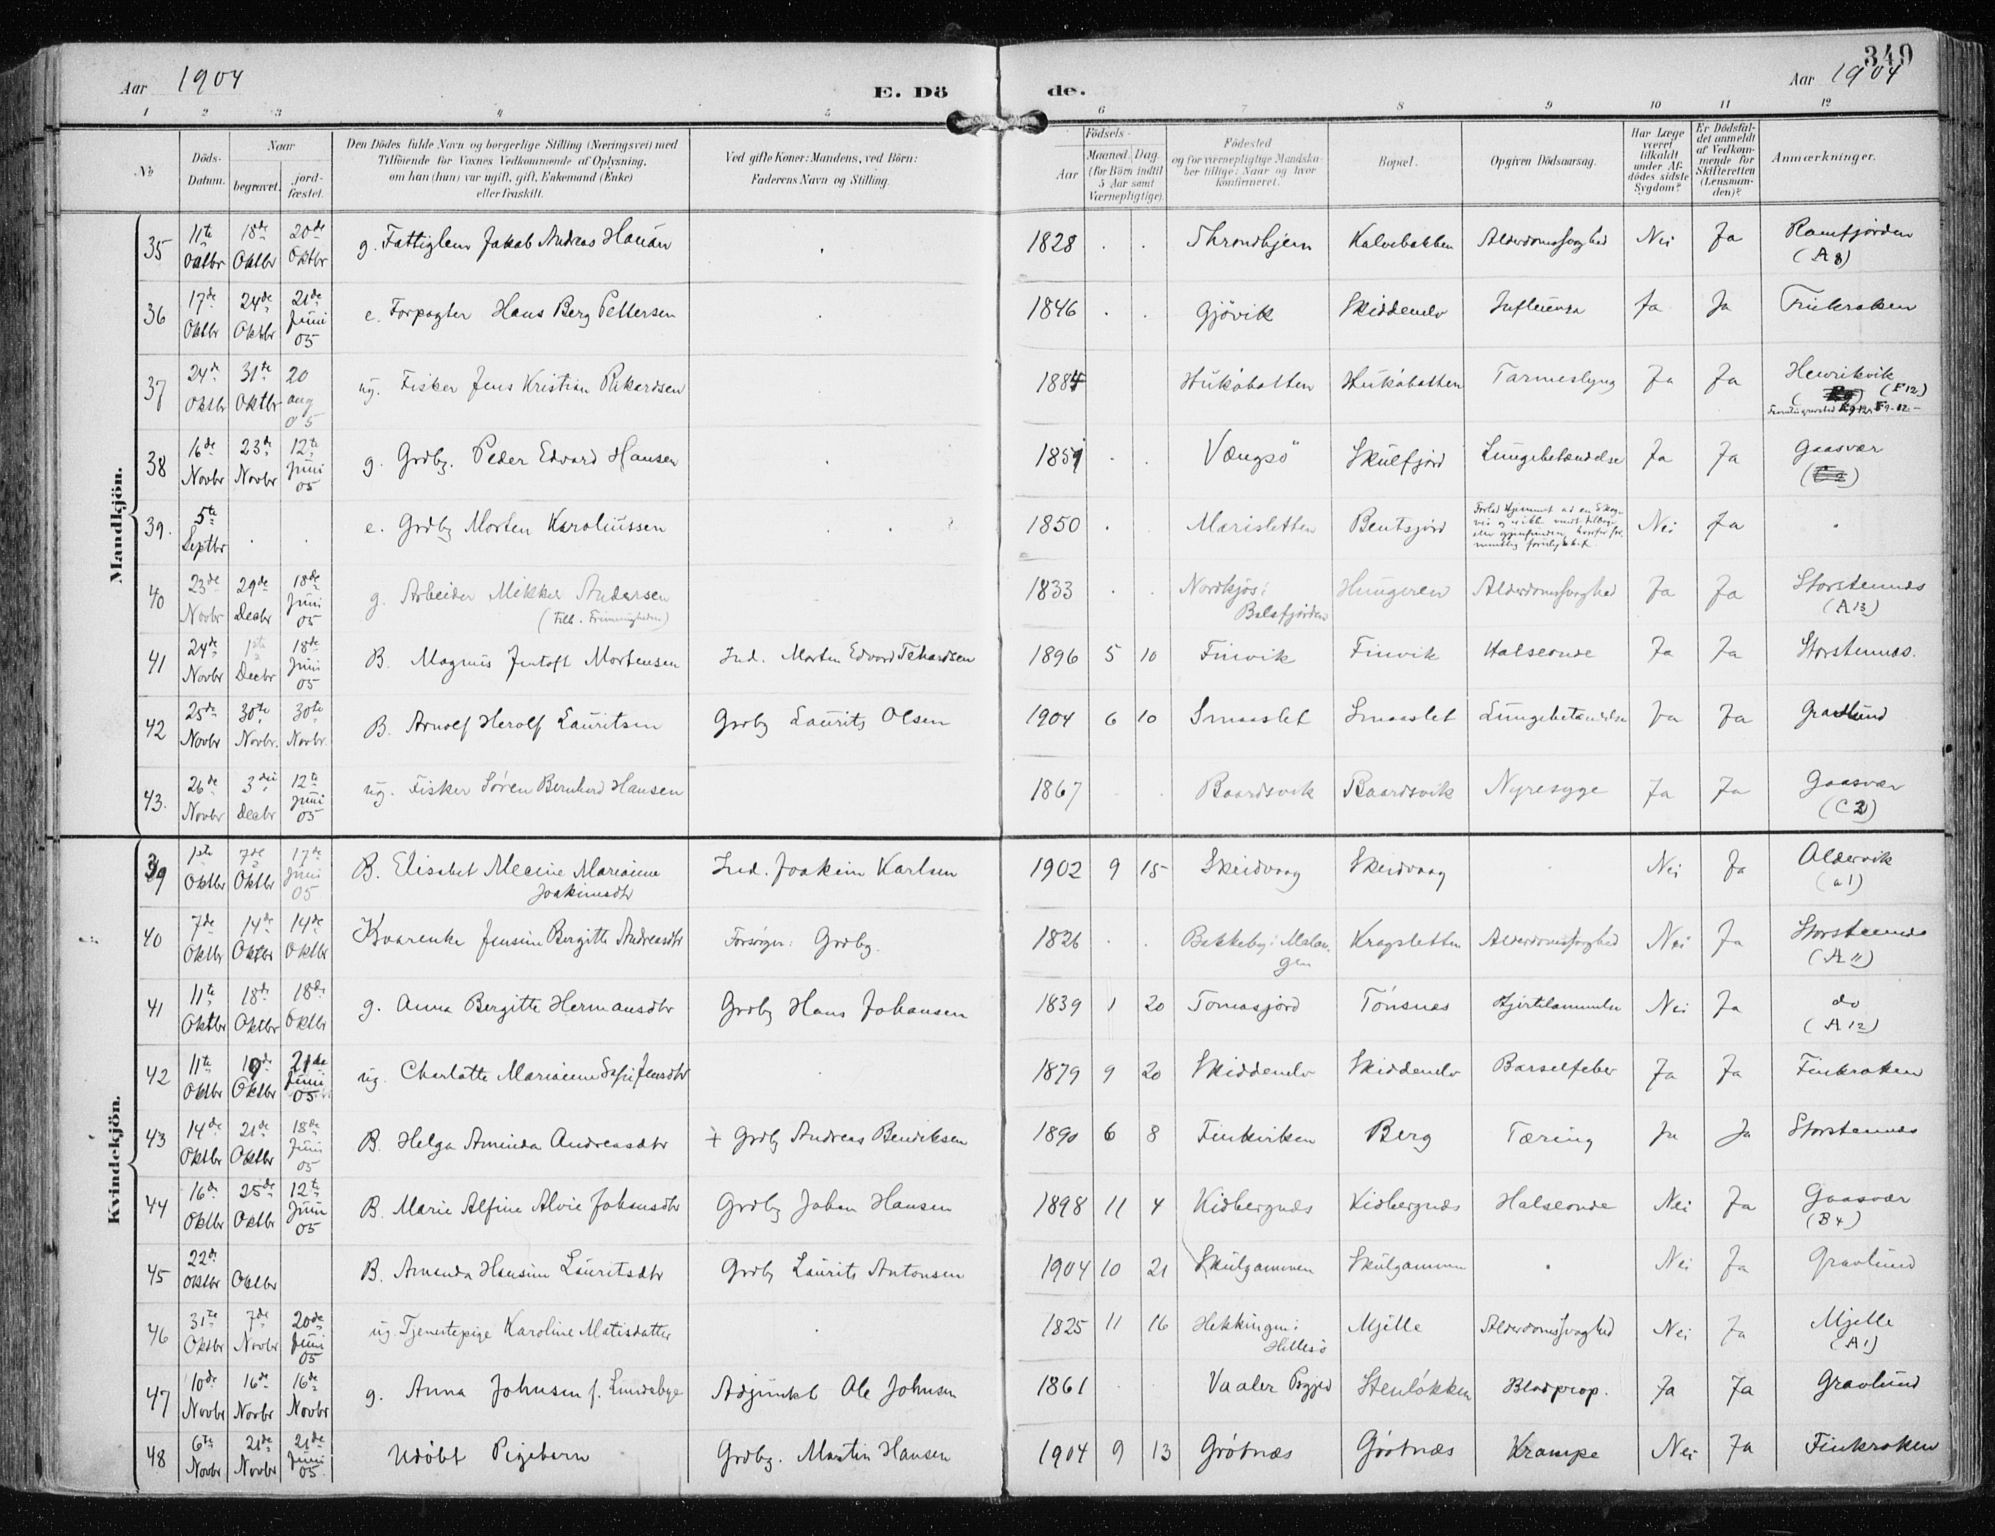 349
Aar 1904
E. Döde.
Aar 1904
1 2 3 4 5 6 7 8 9 10 11 12
No
Döds-Datum.
Naar
begravet.
jord-fæstet.
Den Dödes fulde Navn og borgerlige Stilling (Næringsvei) med
Tilföiende for Voxnes Vedkommende af Oplysning,
om han (hun) var ugift, gift, Enkemand (Enke)
eller fraskilt.
Ved gifte Koner: Mandens, ved Börn:
Faderens Navn og Stilling.
Födsels-
Aar
Maaned. Dag.
(for Börn indtil
5 Aar samt
Værnepligtige)
Födested
og for værnepligtige Mandska-
ber tillige: Naar og hvor
konfirmeret.
Bopæl.
Opgiven Dödsaarsag.
Har Læge
været
tilkaldt
under Af-
dödes sidste
Sygdom?
Er Dödsfal-
det anmeldt
af Vedkom-
mende for
Skifteretten
(Lensman-
den)?
Anmærkninger.
Mandkjön.
35 11te Oktbr 18de Oktbr 20de Oktbr g. Fattiglem Jakob Andreas Hauan 1828 Throndhjem Kalvebakken Alderdomssvaghed Nei Ja Ramfjorden (A 8)
36 17de Oktbr 24de Oktbr 21de Juni 05 e. Forpagter Hans Berg Pettersen 1846 Gjövik Skiddenelv Influensa Ja Ja Finkroken
37 24de Oktbr 31te Oktbr 20 aug 05 ug. Fisker Jens Kristian Rikardsen 1884 Huköbotten Huköbotten Tarmeslyng Ja Ja Henrikvik (F 12)
38 16de Novbr 23de Novbr 12te Juni 05 g. Grdbr. Peder Edvard Hansen 1851 Vængsö Skulfjord Lungebetændelse Ja Ja Gaasvær
39. 5te Septbr e. Grdbr Morten Karoliussen 1850 Marisletten Bentsjord Forlod Hjemmet Nei Ja
40 23de Novbr 29de Decbr 18de Juni 05 g. Arbeider Mikkel Andersen 1833 Nordkjos i Balsfjorden Hungeren Alderdomssvaghed Ja Ja Storstennes (A 13)
41 24de Novbr 1ste Decbr 18de Juni 05 B. Magnus Jentoft Mortensen Ind. Morten Edvard 1896 5 10 Finvik Finvik Halseonde Ja Ja Storstennes.
42 25de Novbr 30te Novbr. 30te Novbr. B. Arnolf Herolf Lauritsen Grdbr Laurits Olsen 1904 6 10 Smaaslet Smaaslet Lungebetændelse Ja Ja Gravlund
43. 26de Novbr 3die Decbr 12te Juni 05 ug. Fisker Sören Bernhard Hansen 1867 Baardsvik Baardsvik Nyresyge Ja Ja Gaasvær (C 2)
Kvindekjön.
39 1ste Oktbr 7de Oktbr 17de Juni 05 B. Elisabet Marianne Joakimsdtr Ind. Joakim Karlsen 1902 9 15 Skeidvaag Skeidvaag Nei Ja Aldervik (a 1)
40 7de Oktbr 14de Oktbr 14de Oktbr Jensine Bergitte Andreasdtr Forsörger: Grdbr. 1826 Bakkeby i Malangen Kragsletten Alderdomssvaghed Nei Ja Storstennes (A 11)
41 11te Oktbr 18de Oktbr 18de Oktbr g. Anna Bergitte Hermansdtr Grdbr Hans Johansen 1839 1 20 Tomasjord Tönsnes Hjertelammelse Nei Ja do (A 12)
42 11te Oktbr 19de Oktbr 21de Juni 05 ug. Charlotte Marianne Sofie Jensdtr 1879 9 20 Skiddenelv Skiddenelv Barselfeber Ja Ja Finkroken
43 14de Oktbr 21de Oktbr 18de Juni 05 B. Helga Aminda Andreasdtr + Grdbr Andreas Bendiksen 1890 6 8 Finkroken Berg Tæring Ja Ja Storstennes
44 16de Oktbr 25de Oktbr 12te Juni 05 B. Marie Alfine Alvie Johansdtr Grdbr Johan Hansen 1898 11 4 Kidbergnæs Kidbergnæs Halseonde Nei Ja Gaasvær (B 4)
45 22de Oktbr Oktbr B. Amanda Hansine Lauritsdtr Grdbr Laurits Antonsen 1904 10 21 Skulgammen Skulgammen Nei Ja Gravlund
46 31te Oktbr 7de Novbr 20de Juni 05 ug. Tjenestepige Karoline Matisdatter 1825 11 16 Hekkingen i Hillesö Mjelle Alderdomssvaghed Nei Ja Mjelle (A 1)
47 10de Novbr 16de Novbr 16de Novbr g. Anna Johnsen f. Lundebye Adjunkt Ole Johnsen 1861 Vaaler Stenlökken Blodprop. Ja Ja Gravlund
48 6te Novbr 21de Novbr 21de Juni 05. Udöbt Pigebarn Grdbr. Martin Hansen 1904 9 13 Grötnæs Grötnæs Krampe Nei Ja Finkroken